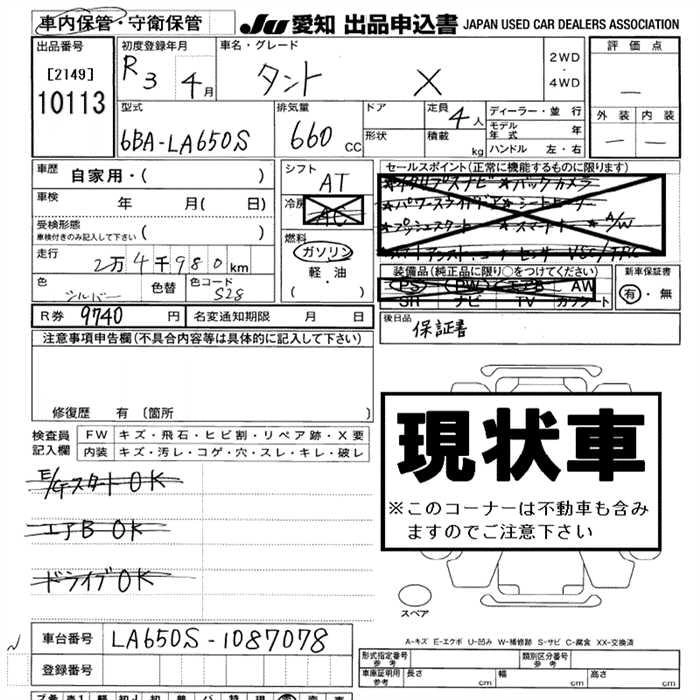 車内保管・守衛保管 JU 愛知 出品申込書 JAPAN USED CAR DEALERS ASSOCIATION
出品番号 初度登録年月 車名・グレード 2WD・4WD 評価点
[2149] 10113 R3 4月 タント X －
外装 内装
－ －
型式 排気量 ドア 定員 4人 ディーラー・並行
6BA-LA650S 660CC 形状 積載 kg モデル年式 年
ハンドル 左・右
車歴 自家用・( )
シフト AT
セールスポイント(正常に機能するものに限ります)
車検 年 月( 日)
冷房 AC
★パワースライドドア★シートヒーター
★プッシュスタート ★スマートキー ★A/W
受検形態 車検付きのみ記入して下さい ( )
燃料 ガソリン 軽・油 ( )
走行 2万4千980km
装備品(純正品に限り○をつけてください) 新車保証書
PS PW エアB AW 有・無
SR ナビ TV カワシート
色 シルバー 色替 色コード S28
後日品 保証書
R券 9740円 名変通知期限 月 日
注意事項申告欄(不具合内容等は具体的に記入して下さい)
修復歴 有 〔箇所 〕
現状車
※このコーナーは不動車も含みますのでご注意下さい
検査員記入欄 FW キズ・飛石・ヒビ割・リペア跡・X要
内装 キズ・汚レ・コゲ・穴・スレ・キレ・破レ
E/Gスタート OK
エアB OK
ドライブ OK
スペア
A-キズ E-エクボ U-凹み W-補修跡 S-サビ C-腐食 XX-交換済
車台番号 LA650S-1087078
登録番号
形式指定番号 参考 類別区分番号 参考
車庫証明用 参考 長さ cm 幅 cm 高さ cm